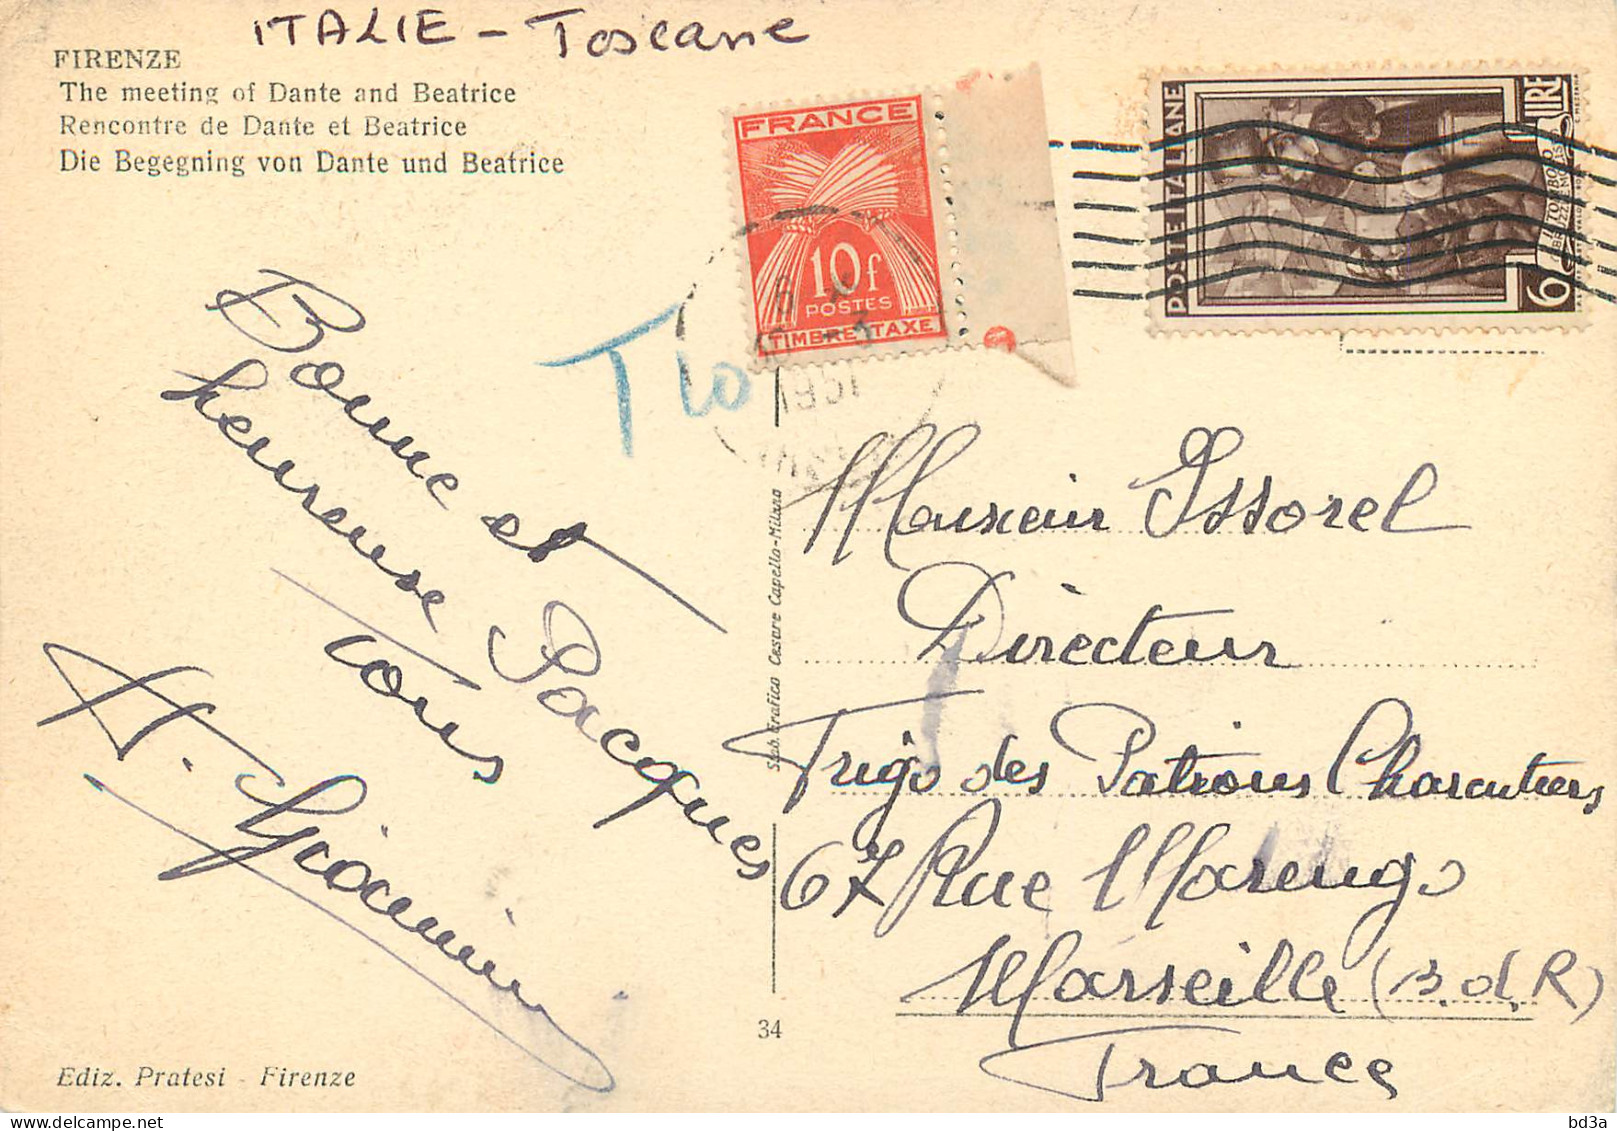 ITALIE - Toscane
FIRENZE
The meeting of Dante and Beatrice
Rencontre de Dante et Beatrice
Die Begegning von Dante und Beatrice
FRANCE
10f
POSTES
TIMBRE TAXE
POSTE ITALIANE
6 LIRE
IL TORBOLO
T10
Bonne et
heureuse Pacques
tous
A. Gioannini
Monsieur Issorel
Directeur
Frigo des Patrons Charcutiers
67 Rue Marengo
Marseille (B.d.R)
France
Stab. Grafico Cesare Capello-Milano
34
Ediz. Pratesi - Firenze
bd3a